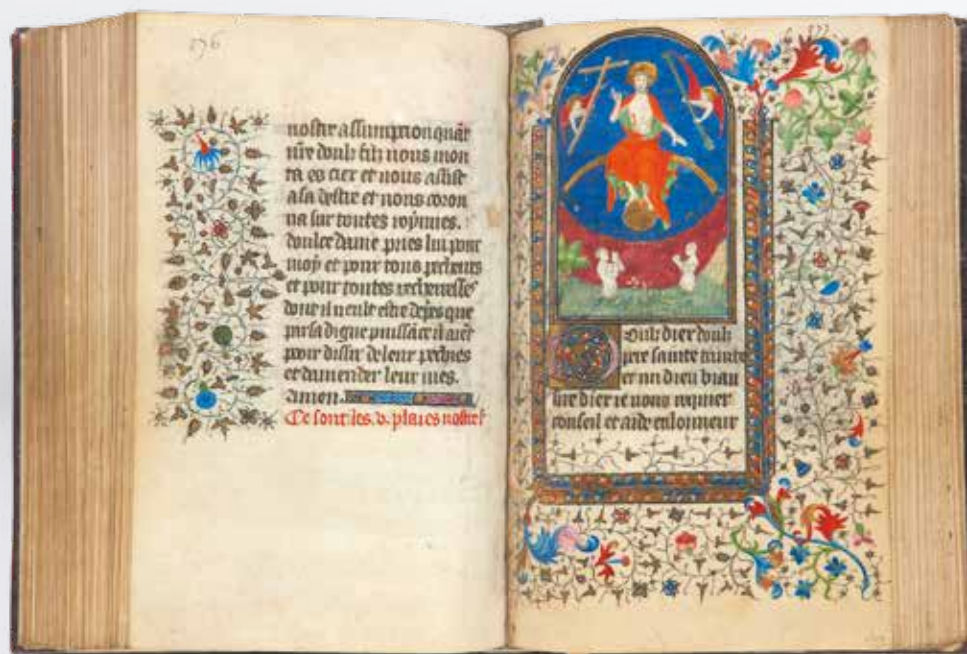 276
nostre assumption quãt
nr̃e doulz filz nous mon
ta es ciex et nous assist
a sa destre et nous coron
na sur toutes roÿnnes.
doulce dame pries lui pour
moÿ et pour tous pecheurs
et pour toutes pecheresses
dont il ueult estre
par sa digne puissãce
pour de leur pechies
et damender leur uies.
amen.
Ce sont les .v. plaies nostre
277
Doulz dier doulz
pere sainte
et un dieu
sire dier ie uous requier
conseil et aide en lonneur